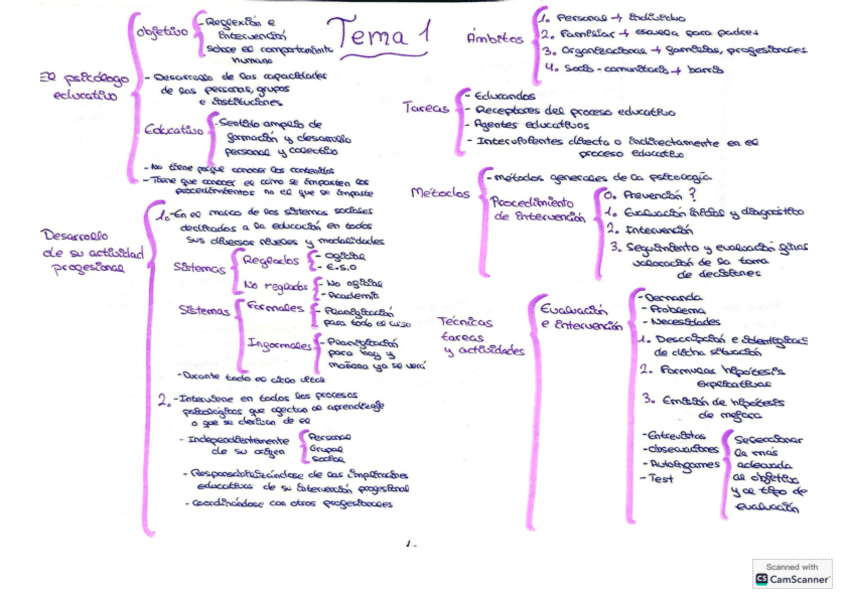 Tema 1
El psicólogo
educativo
Objetivo
- Reflexión e
intervención
sobre el comportamiento
humano
- Desarrollo de las capacidades
de las personas, grupos
e instituciones
Educativo
- Sentido amplio de
formación y desarrollo
personal y colectivo
- No tiene porque conocer los contenidos
- Tiene que conocer es cómo se imparten los
procedimientos no el que se imparte
Desarrollo
de su actividad
profesional
1. - En el marco de los sistemas sociales
dedicados a la educación en todos
sus diversos niveles y modalidades
Sistemas
Reglados
- Oficial
- E.S.O
No reglados
- No oficial
- Academia
Sistemas
Formales
- Planificación
para todo el curso
Informales
- Planificación
para hoy y
mañana ya se verá
- Durante todo el ciclo vital
2. - Interviene en todos los procesos
psicológicos que afectan al aprendizaje
o que se derivan de él
- Independientemente
de su origen
Personal
Grupal
Social
- Responsabilizándose de las implicaciones
educativas de su intervención profesional
- Coordinándose con otros profesionales
Ámbitos
1. Personal → Individuo
2. Familiar → escuela para padres
3. Organizacional → familias, profesionales
4. Socio-comunitario → barrio
Tareas
- Educandos
- Receptores del proceso educativo
- Agentes educativos
- Intervinientes directa o indirectamente en el
proceso educativo
Métodos
- métodos generales de la psicología
Procedimiento
de intervención
0. Prevención?
1. Evaluación inicial y diagnóstico
2. Intervención
3. Seguimiento y evaluación final
valoración de la toma
de decisiones
Técnicas
tareas
y actividades
Evaluación
e intervención
- Demanda
- Problema
- Necesidades
1. Descripción e
de dicha situación
2. Formular hipótesis
explicativas
3. Emisión de hipótesis
de mejora
- Entrevistas
- Observadores
- Autoinformes
- Test
Seleccionar
la más
adecuada
al objetivo
y al tipo de
evaluación
1-
Scanned with
CS CamScanner